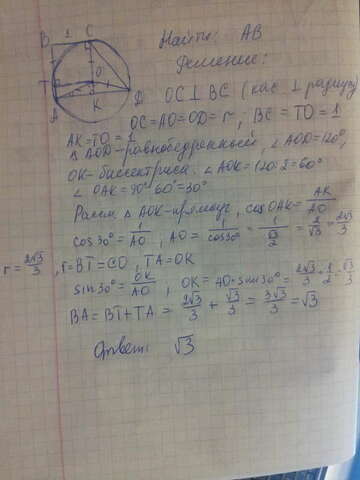 B 1 C
T O
A K D
Найти: AB
Решение:
OC⊥BC (кас ⊥ радиусу)
OC=AO=OD=r, BC=TO=1
AK=TO=1
△AOD-равнобедренный, ∠AOD=120°,
OK-биссектриса. ∠AOK=120:2=60°
∠OAK=90°-60°=30°
Рассм. △AOK-прямоуг, cosOAK=AK/AO
cos30°=1/AO, AO=1/cos30°=1/(√3/2)=2/√3=2√3/3
r=2√3/3, r=BT=CO, TA=OK
sin30°=OK/AO, OK=AO·sin30°=2√3/3·1/2=√3/3
BA=BT+TA=2√3/3+√3/3=3√3/3=√3
Ответ: √3